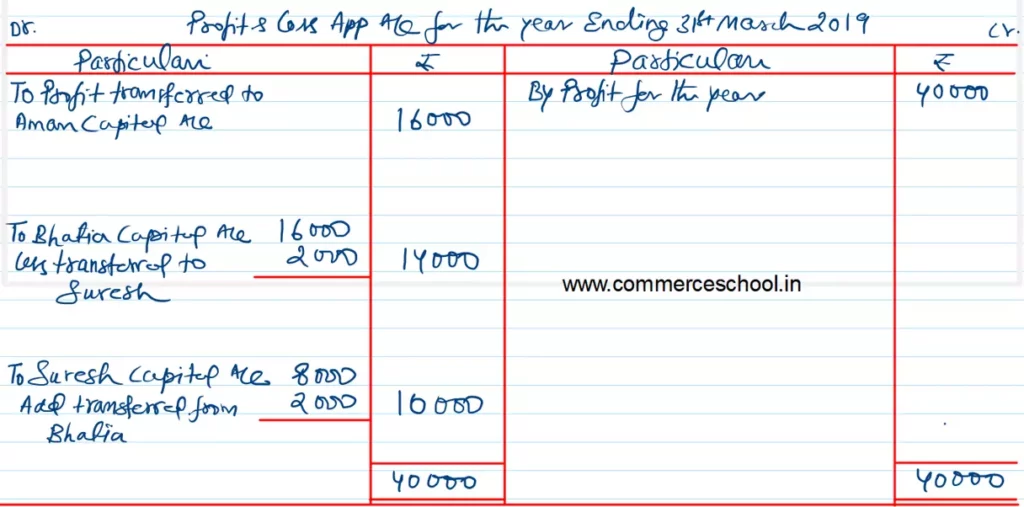 Dr. Profit & Loss App A/c for the year Ending 31st March 2019 Cr.
Particulars ₹ Particulars ₹
To Profit transferred to By Profit for the year 40000
Aman Capital A/c 16000
To Bhatia Capital A/c 16000
Less transferred to 2000 14000
Suresh
www.commerceschool.in
To Suresh Capital A/c 8000
Add transferred from 2000 10000
Bhatia
40000 40000